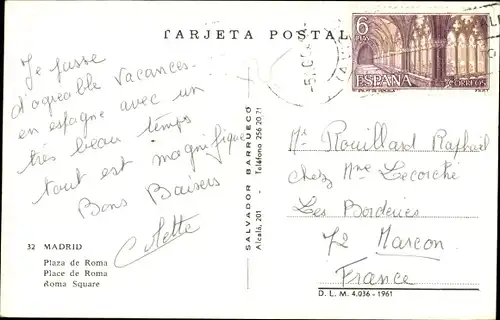 TARJETA POSTAL
Je passe
d'agreable vacances.
en espagne avec un
très beau temps
tout est magnifique
Bons Baisers
Colette
32 MADRID
Plaza de Roma
Place de Roma
Roma Square
SALVADOR BARRUECO
Alcalá, 201 - Teléfono 256 20 71
6
PTA
ESPAÑA
CORREOS
Mr Rouillard Raphaël
chez Mme Lecorché
Les Borderies
72 Marcon
France
D. L. M. 4.036 - 1961